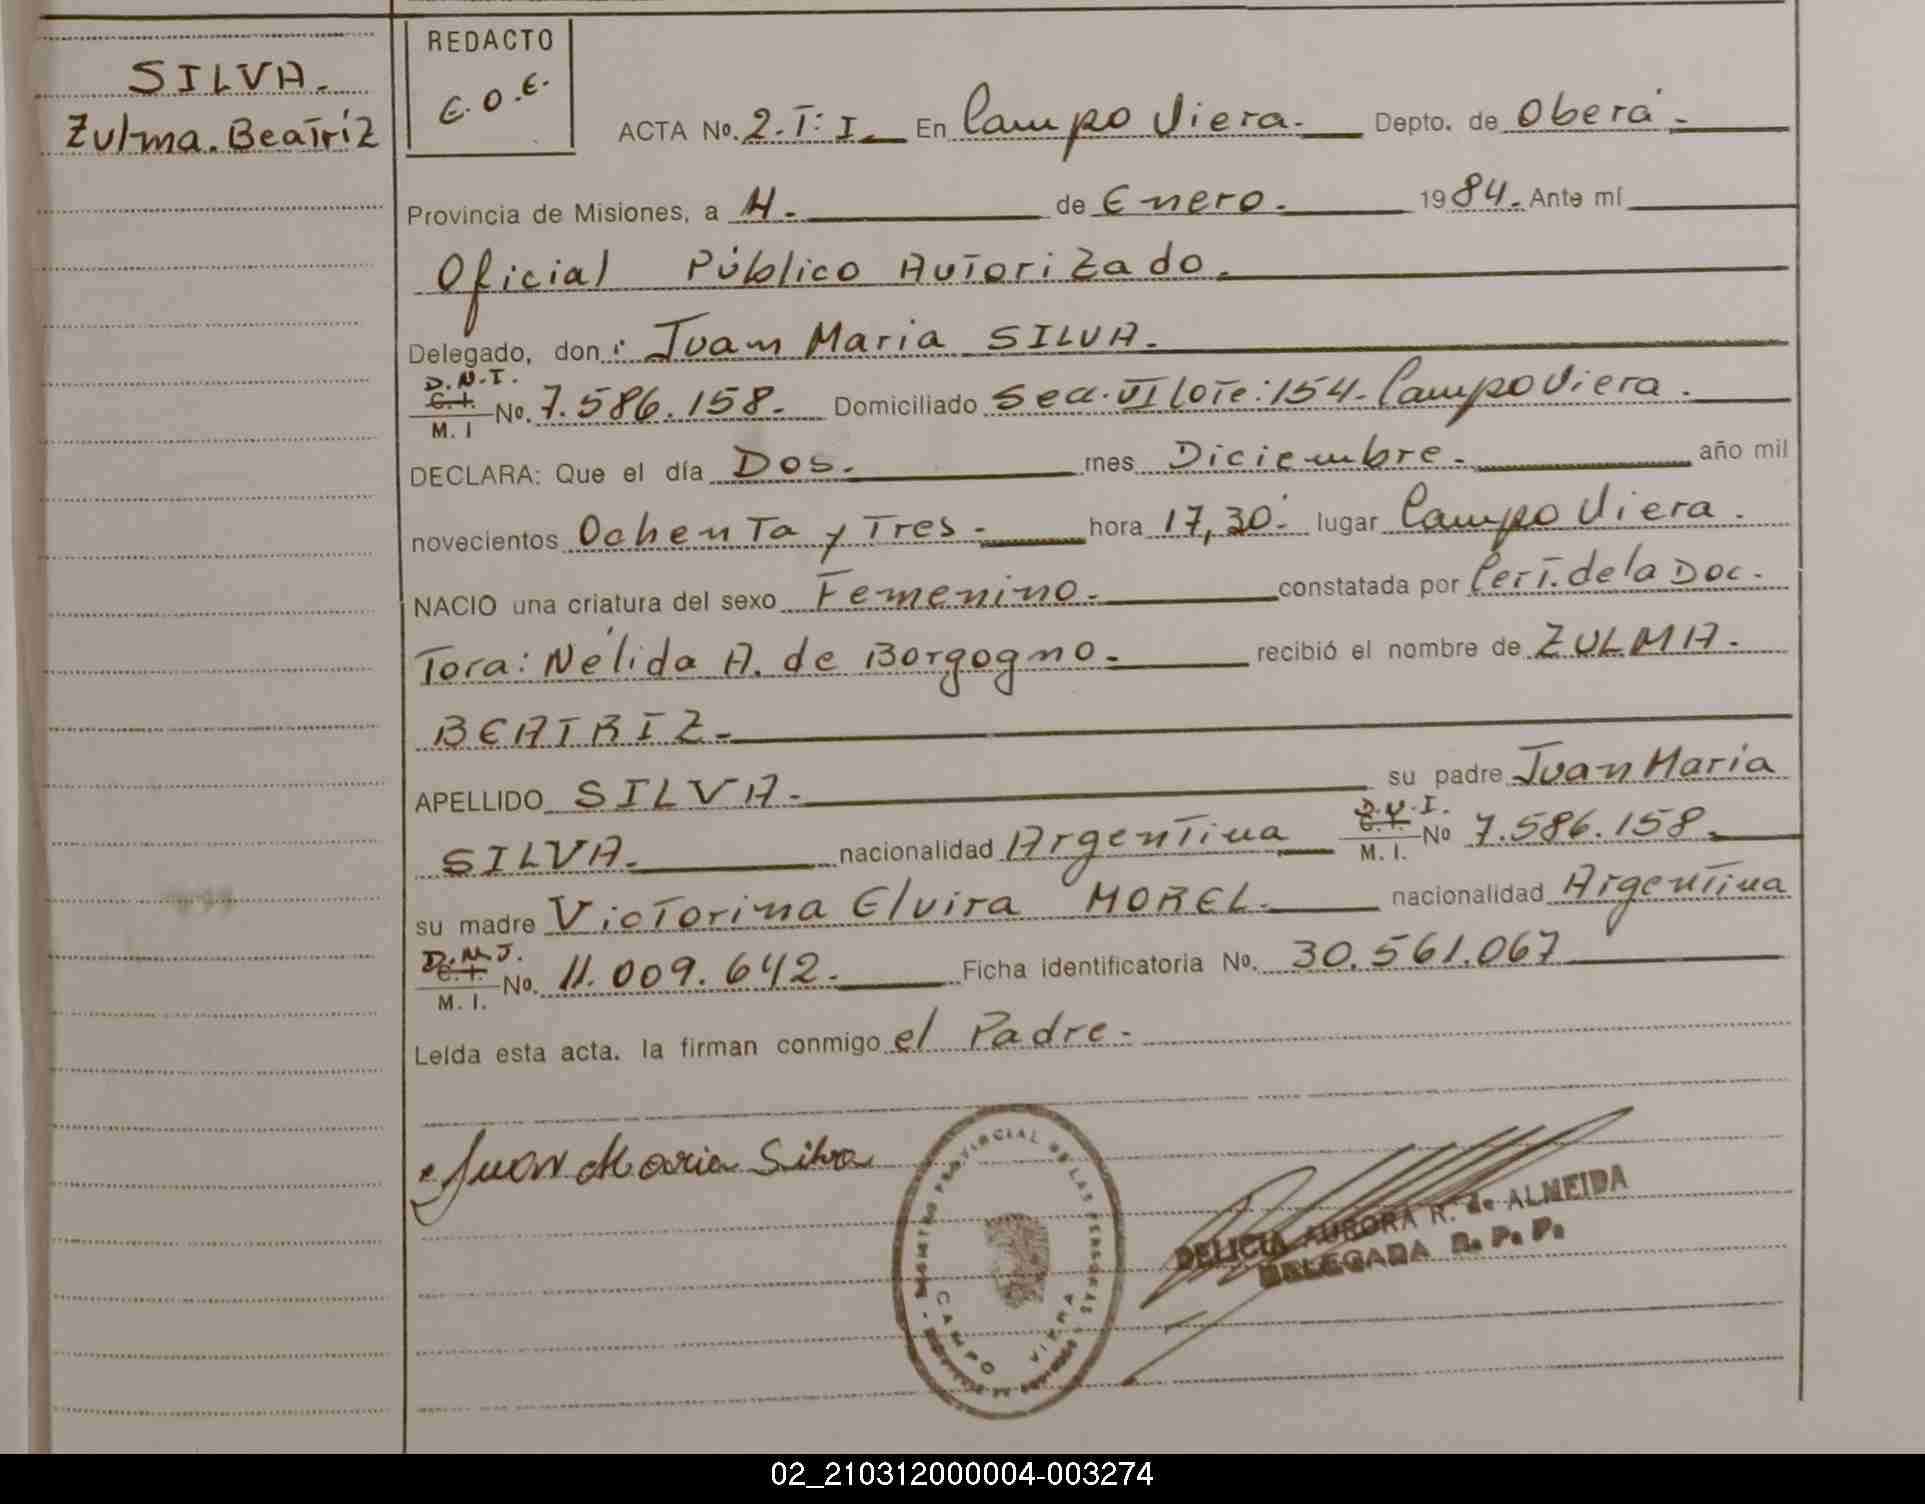 SILVA.
Zulma. Beatríz
REDACTO
E.O.E.
ACTA No. 2. T: I. En Campo Viera. Depto. de Oberá.
Provincia de Misiones, a 4. de Enero. 1984. Ante mí
Oficial Público Autorizado.
Delegado, don: Juan Maria SILVA.
D.N.I.
C.I.
M. I No. 7.586.158. Domiciliado Secc. VI lote: 154. Campo Viera.
DECLARA: Que el día Dos. mes Diciembre. año mil
novecientos Ochenta y Tres. hora 17,30. lugar Campo Viera.
NACIO una criatura del sexo Femenino. constatada por Cert. de la Doc-
tora: Nélida A. de Borgogno. recibió el nombre de ZULMA.
BEATRIZ.
APELLIDO SILVA. su padre Juan Maria
SILVA. nacionalidad Argentina D.N.I. C.I. M. I. No 7.586.158.
su madre Victorina Elvira MOREL. nacionalidad Argentina
D.N.I.
C.I.
M. I. No. 11.009.642. Ficha identificatoria No. 30.561.067
Leída esta acta. la firman conmigo el Padre.
Juan Maria Silva
REGISTRO PROVINCIAL DE LAS PERSONAS
CAMPO VIERA
DELICIA AURORA R. de ALMEIDA
DELEGADA R. P. P.
02_210312000004-003274